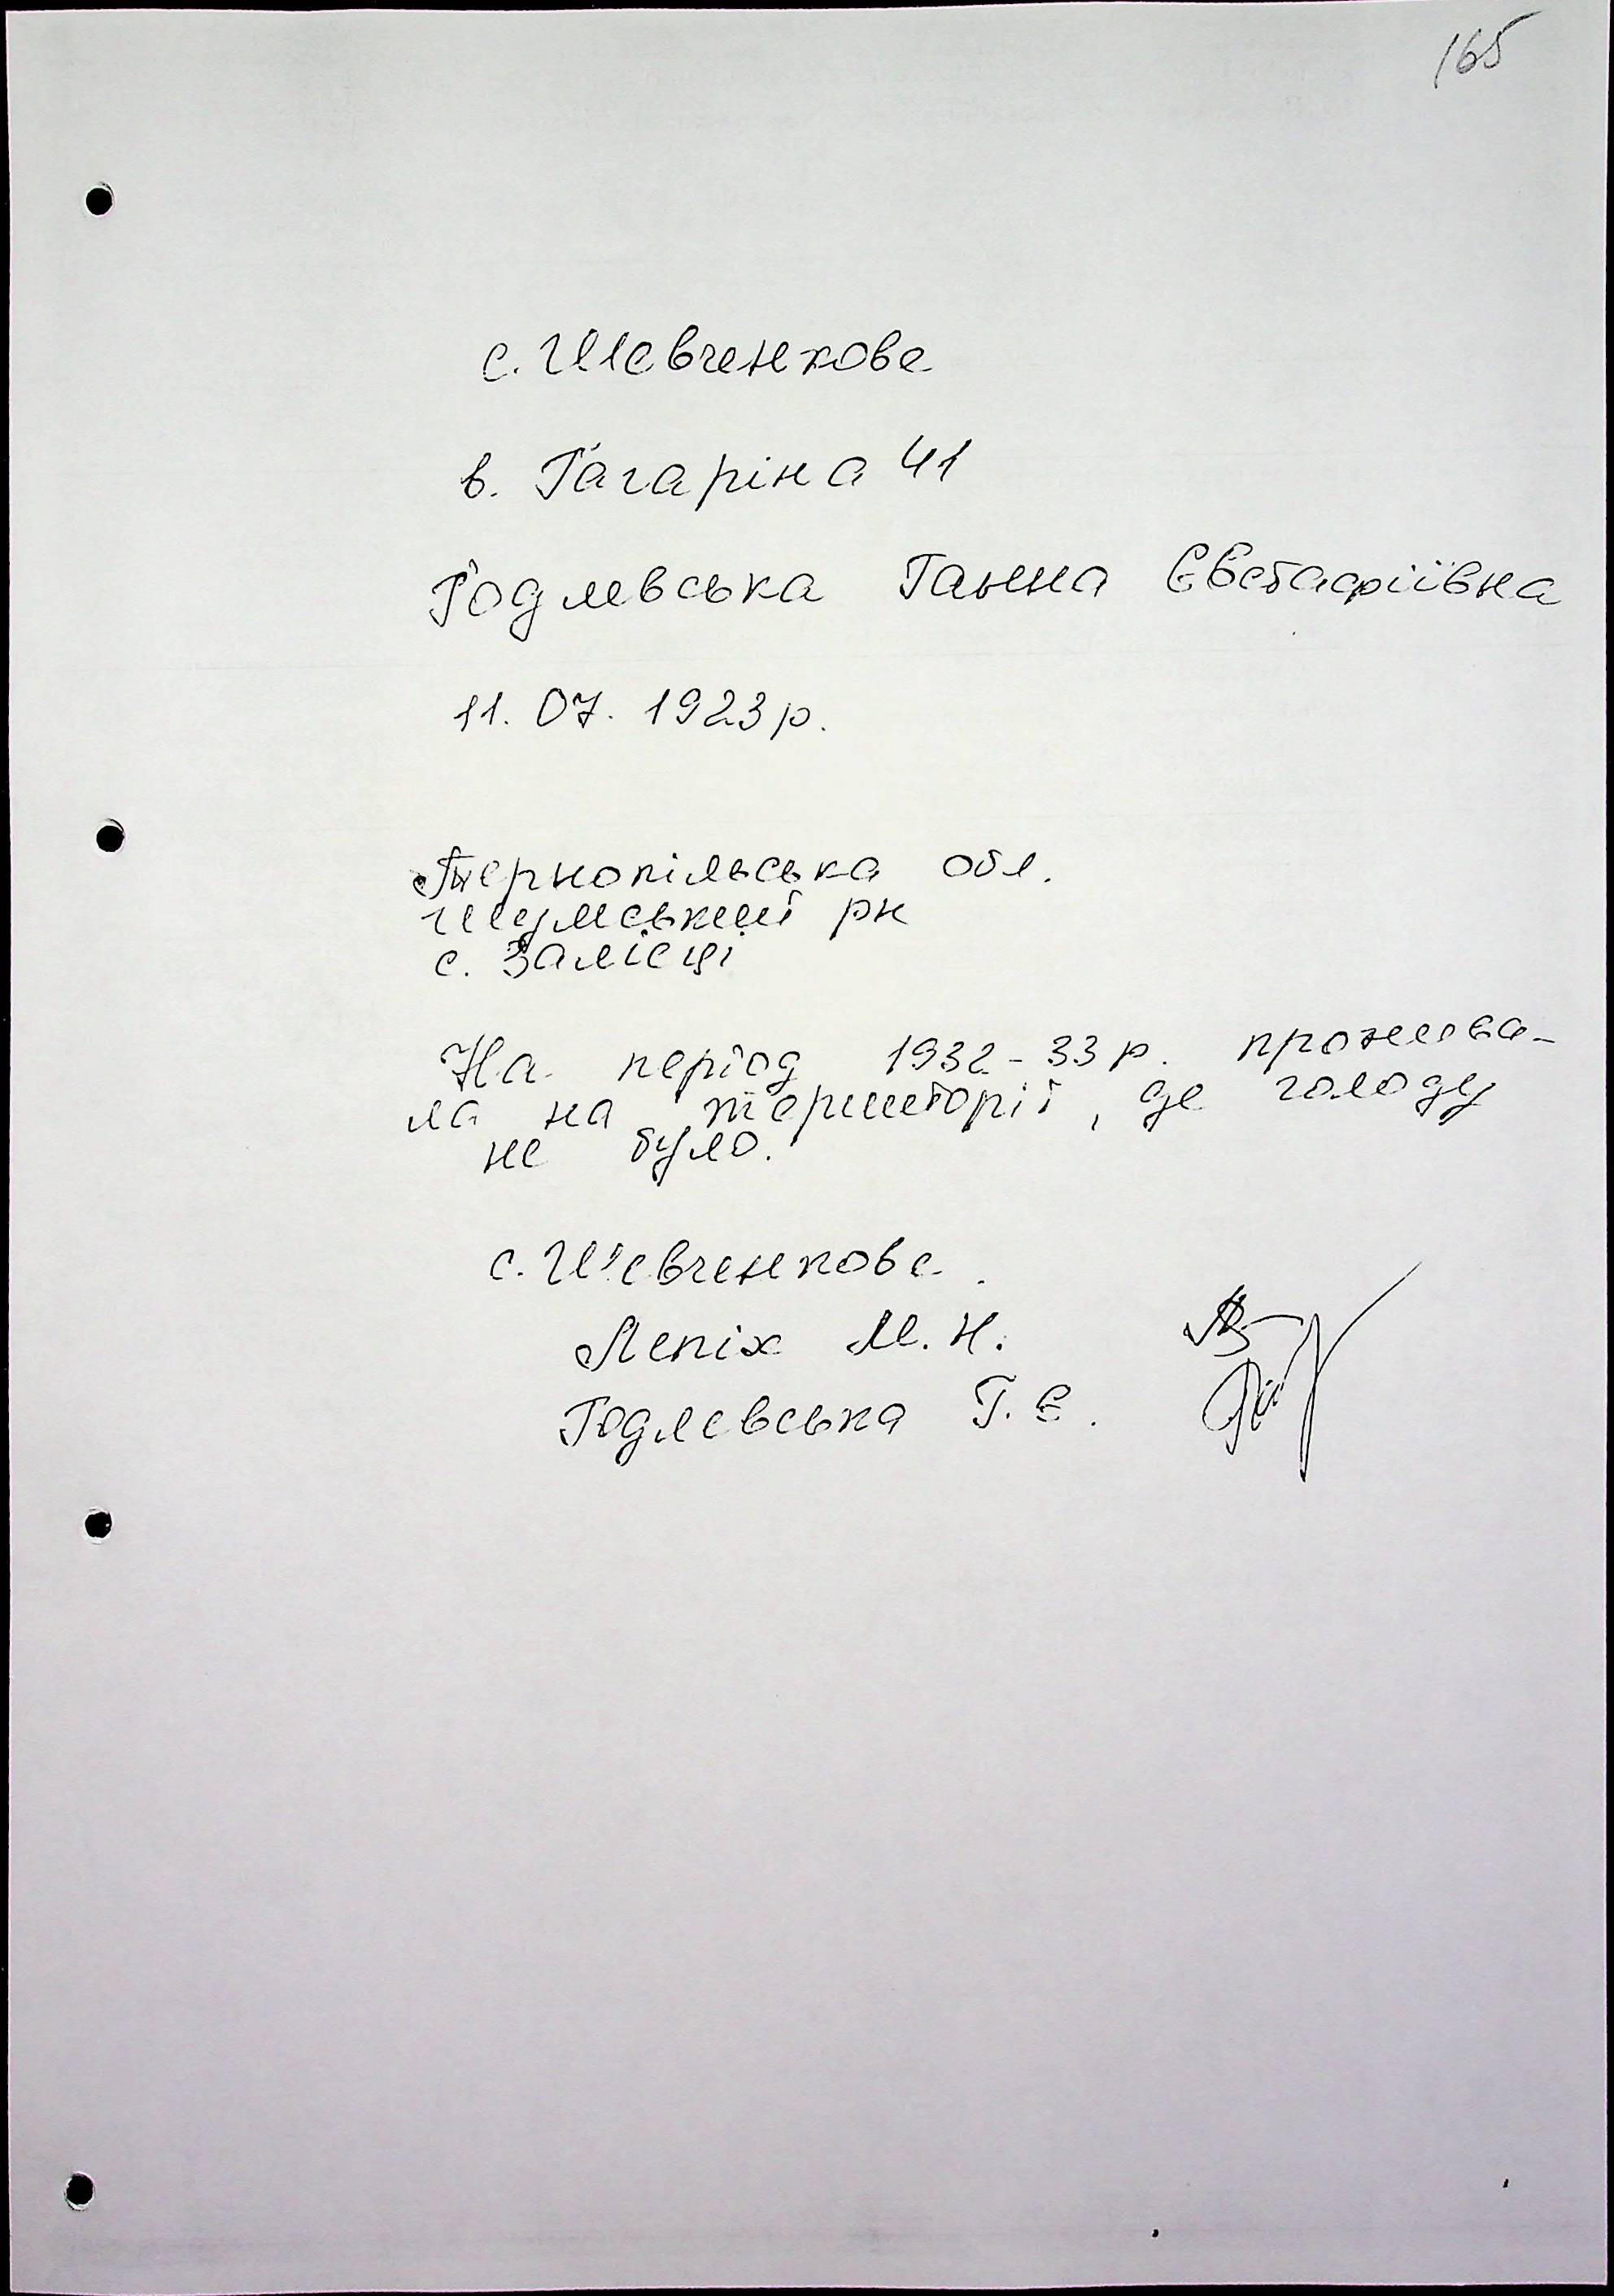 165
с. Шевченкове
в. Гагаріна 41
Годлевська Ганна Євстафіївна
11. 07. 1923 р.
Тернопільська обл.
Шумський рн
с. Залісці
На період 1932-33 р. прожива-
ла на території, де голоду
не було.
с. Шевченкове.
Лепіх М. Н.
Годлевська Г. Є.